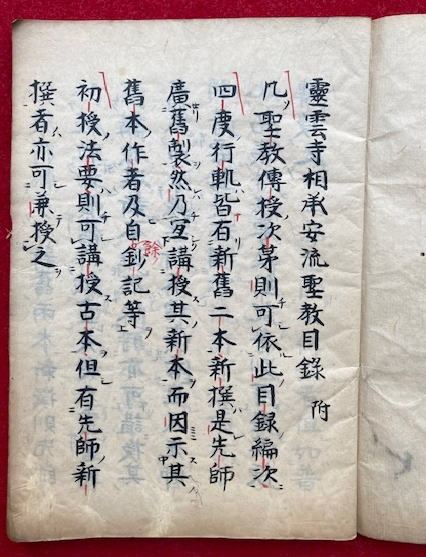 靈雲寺相承安流聖教目録 附
凡聖教傳授次第則可依此目録編次
四度行軌皆有新舊二本新撰是先師
廣舊製然乃宜講授其新本而因示其
舊本作者及自餘鈔記等
初授法要則可講授古本但有先師新
撰者亦可兼授之